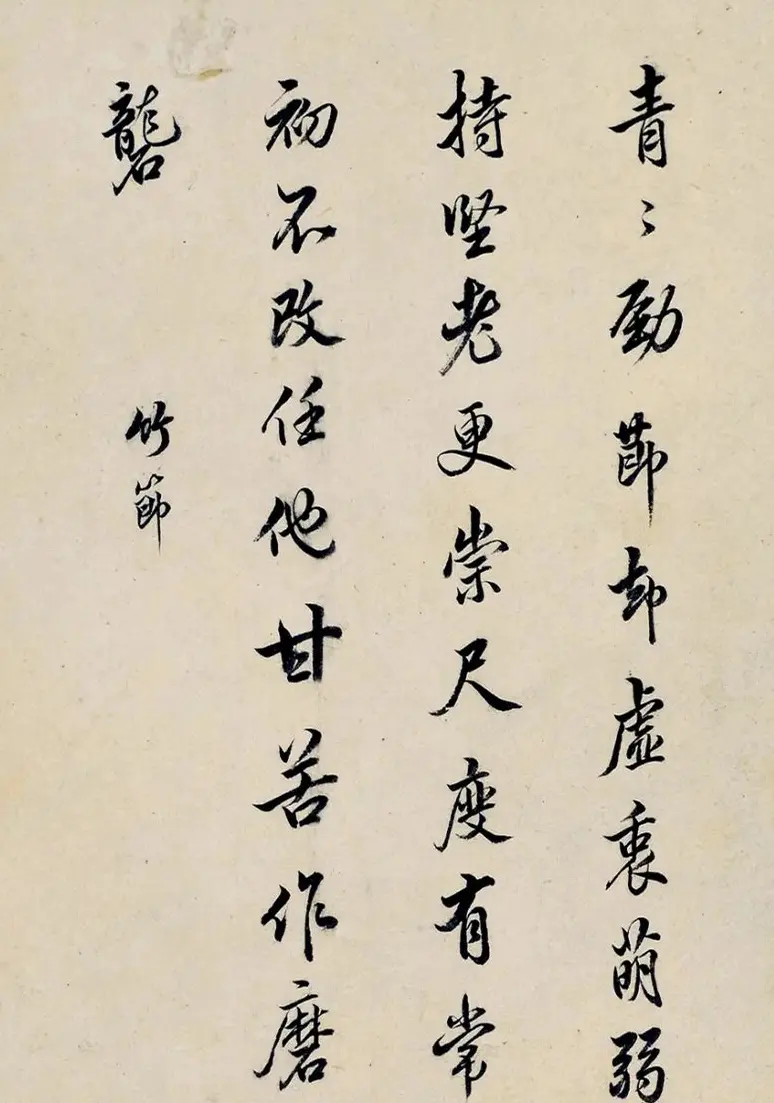 青〻励節却虚衷萌弱
持堅老更崇尺度有常
初不改任他甘苦作磨
礱 竹節